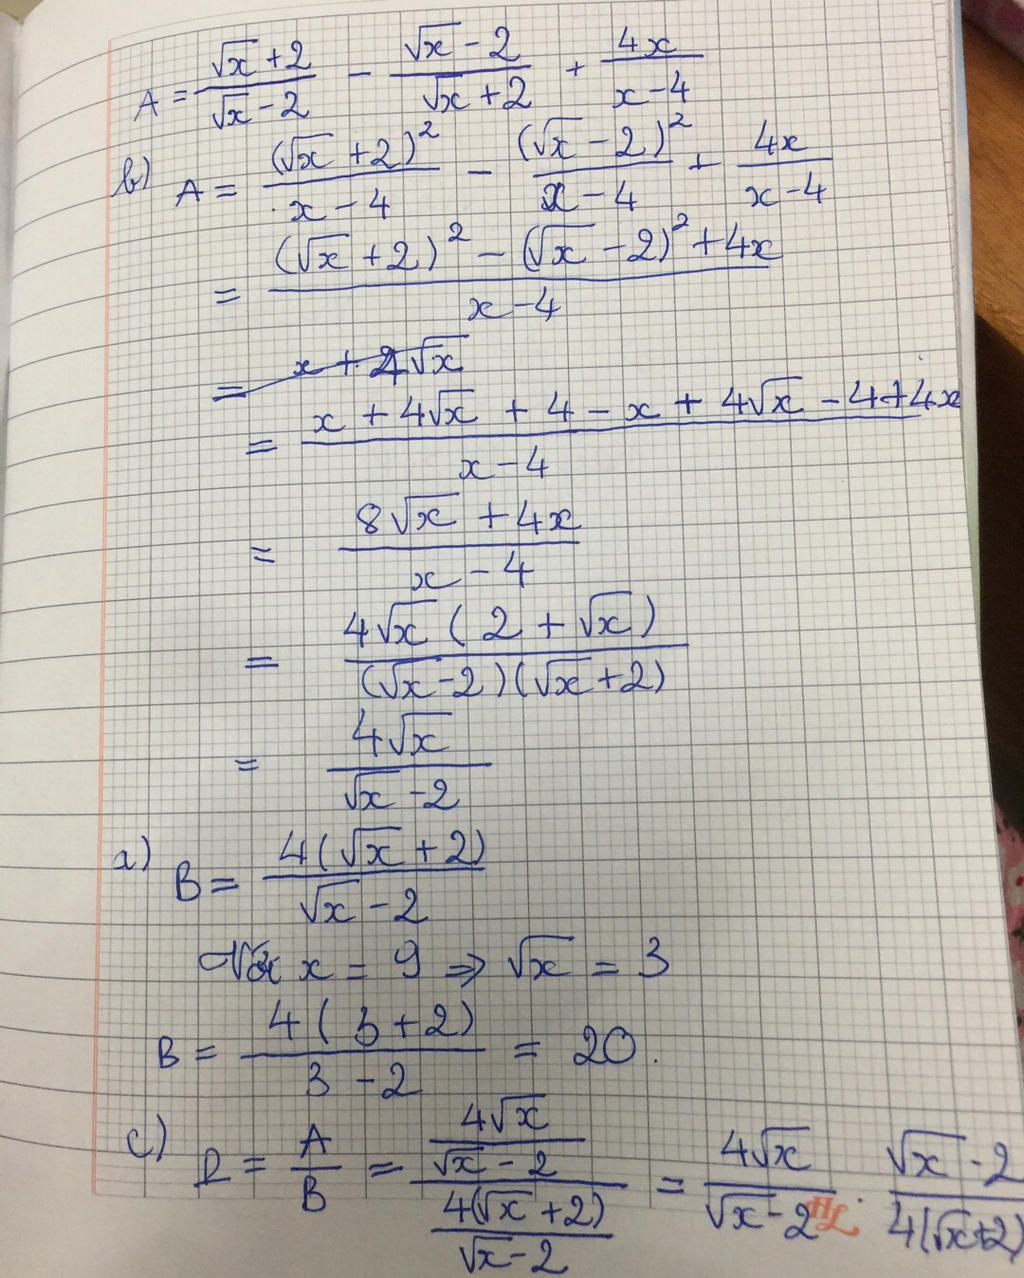 A = (√x + 2)/(√x - 2) - (√x - 2)/(√x + 2) + 4x/(x - 4)
b) A = (√x + 2)²/(x - 4) - (√x - 2)²/(x - 4) + 4x/(x - 4)
= ((√x + 2)² - (√x - 2)² + 4x)/(x - 4)
= x + 4√x
= (x + 4√x + 4 - x + 4√x - 4 + 4x)/(x - 4)
= (8√x + 4x)/(x - 4)
= 4√x(2 + √x)/((√x - 2)(√x + 2))
= 4√x/(√x - 2)
a) B = 4(√x + 2)/(√x - 2)
x = 9 ⇒ √x = 3
B = 4(3 + 2)/(3 - 2) = 20.
c) P = A/B = (4√x/(√x - 2))/(4(√x + 2)/(√x - 2)) = 4√x/(√x - 2) . (√x - 2)/(4(√x + 2))
HL